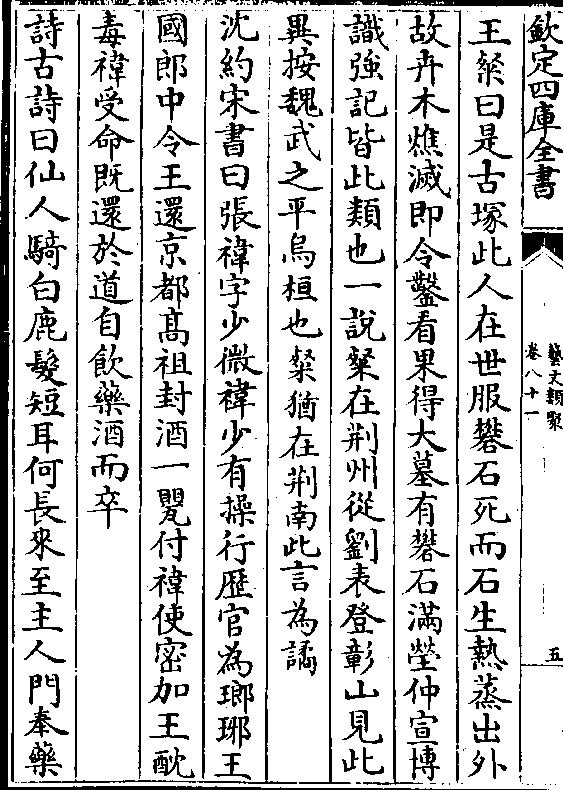 欽定四庫全書
藝文類聚
卷八十一
五
王粲曰是古塚此人在世服礬石死而石生熱蒸出外
故卉木燋滅即令鑿看果得大墓有礬石滿塋仲宣博
識強記皆此類也一說粲在荆州從劉表登彰山見此
異按魏武之平烏桓也粲猶在荆南此言為譎
沈約宋書曰張禕字少微禕少有操行歴官為瑯琊王
國郎中令王還京都髙祖封酒一甖付禕使密加王酖
毒禕受命既還於道自飲藥酒而卒
詩古詩曰仙人騎白鹿髮短耳何長來至主人門奉藥